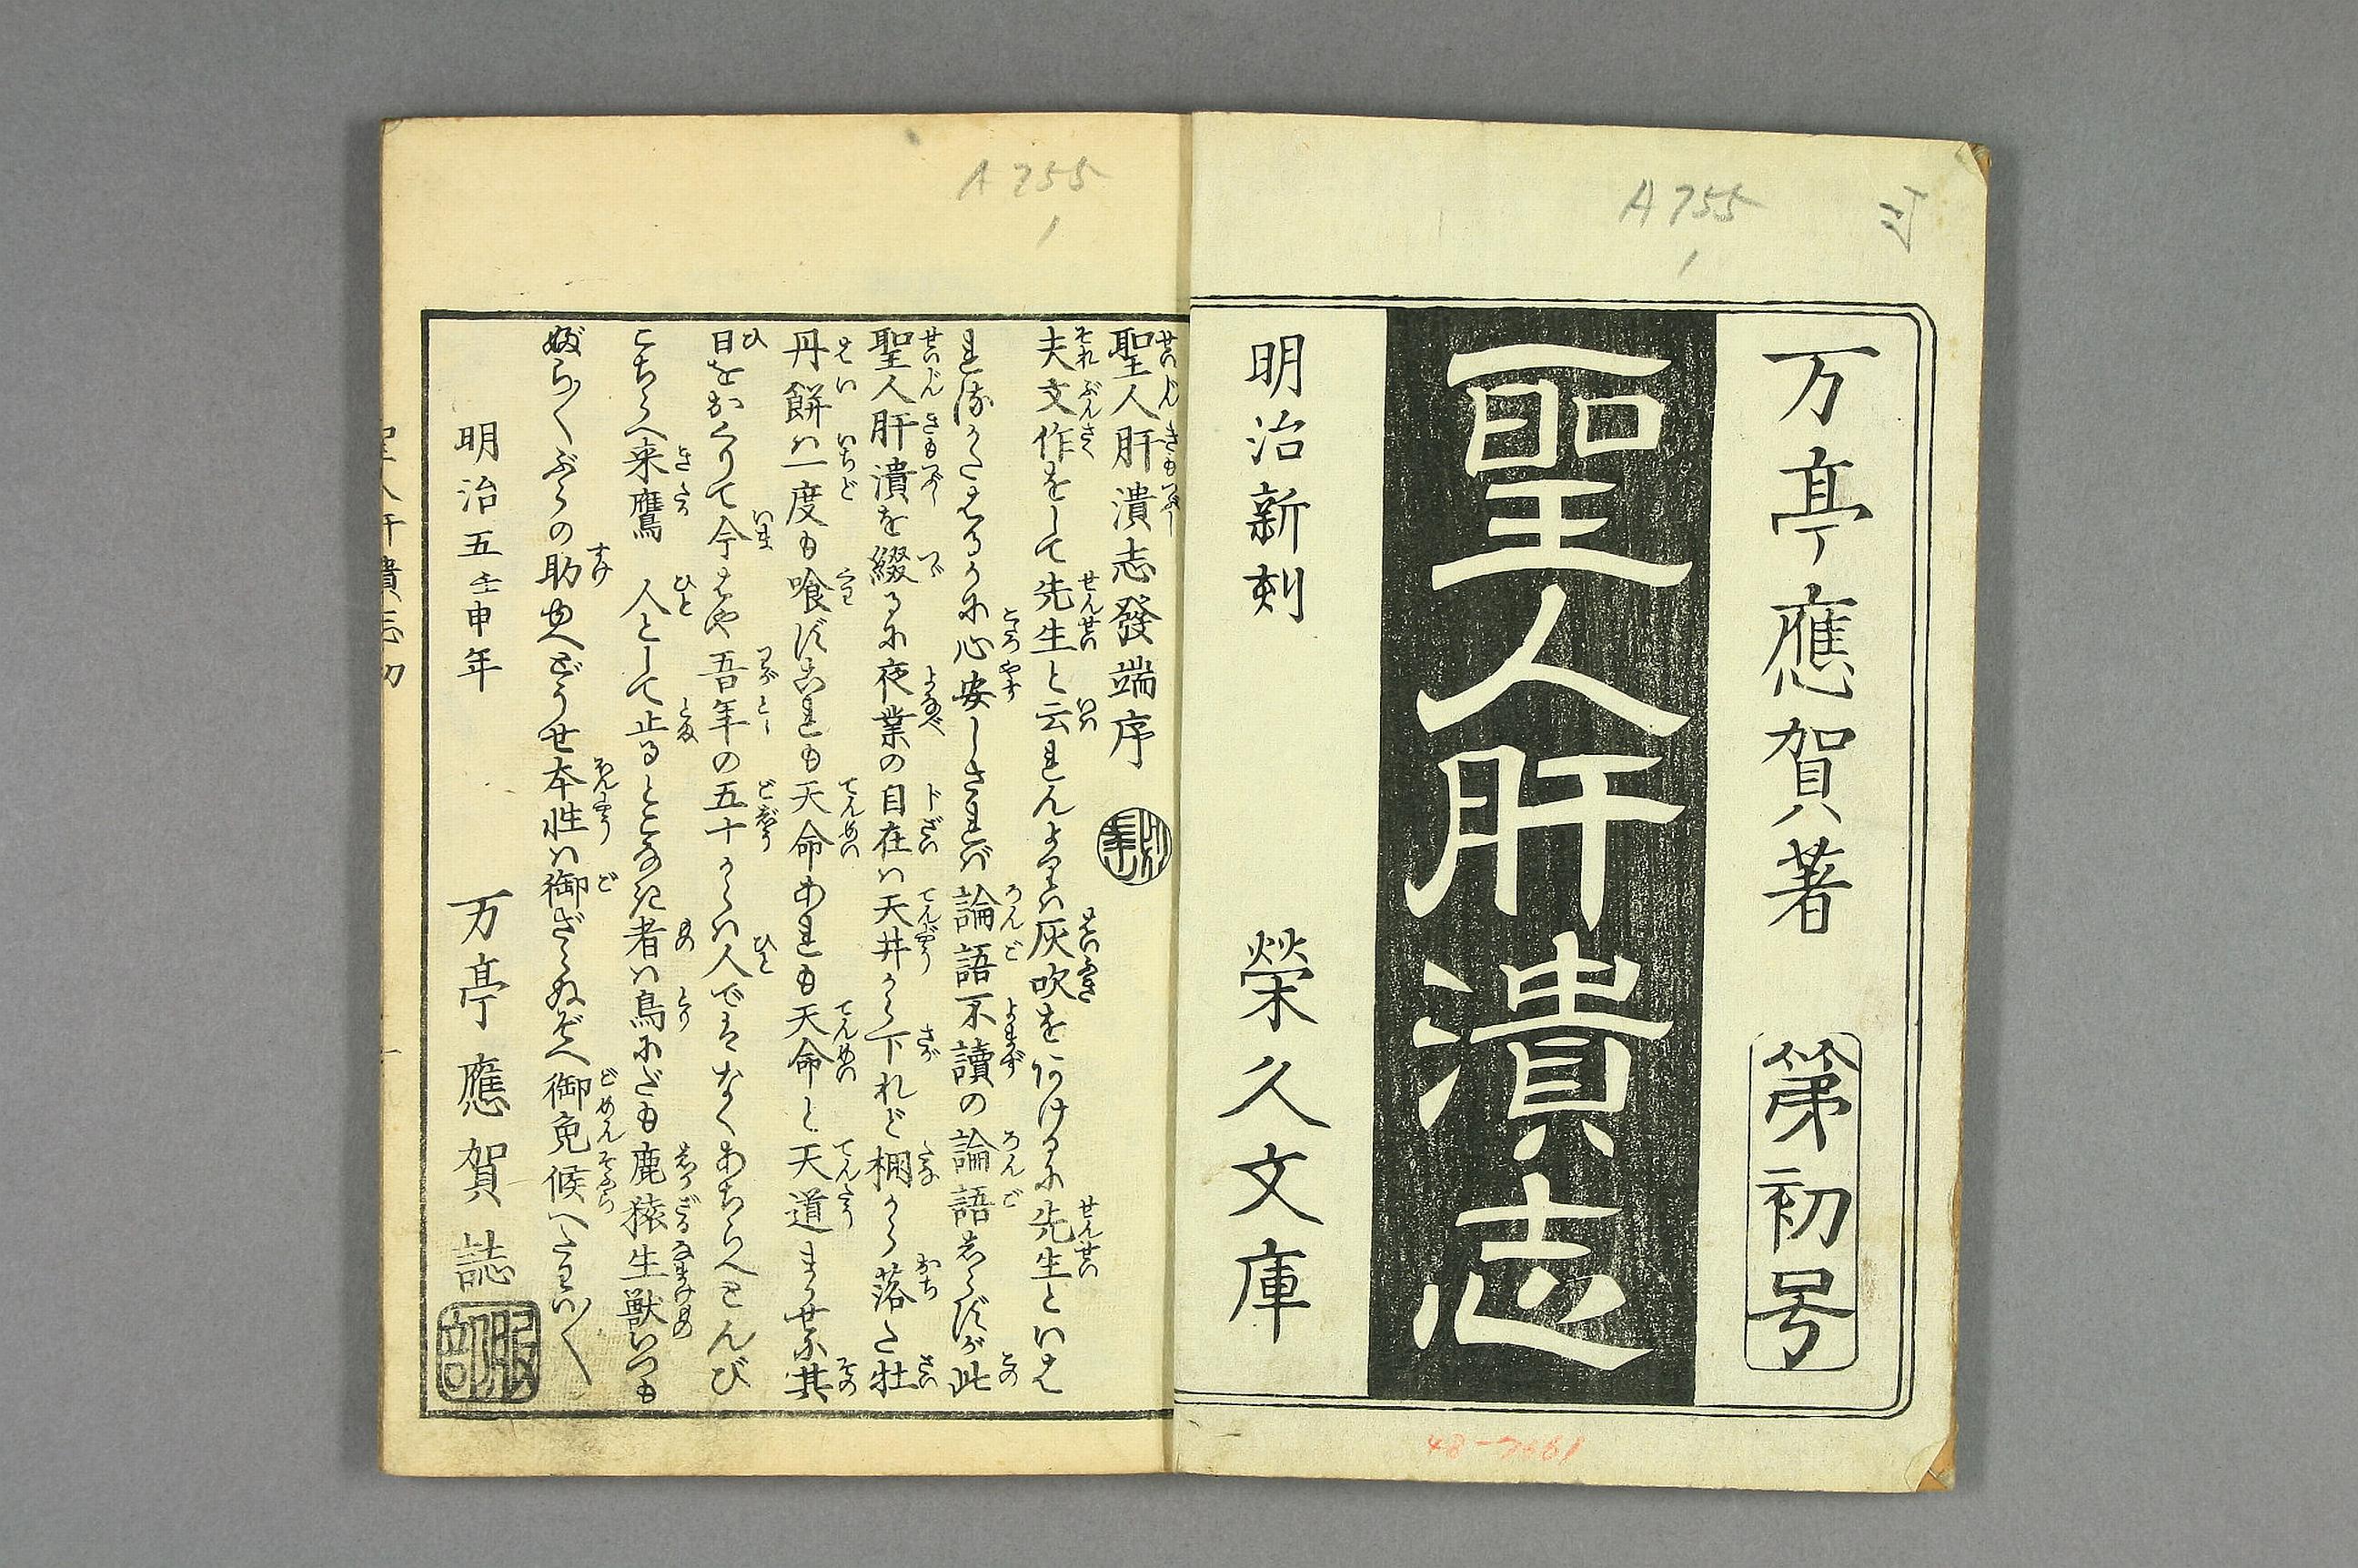 万亭應賀著
第初号
聖人肝潰志
明治新刻
榮久文庫
A755
1
48-7661
A755
1
聖人肝潰志發端序
夫文作をして先生と云れんよりハ灰吹をにけるに先生といは
れぬるに心安しされバ論語不讀の論語しらずが此
聖人肝潰を綴るに夜業の自在ハ天井から下れど棚から落た牡
丹餅ハ一度も喰ずされども天命あれも天命と天道まかせ其
日をおくりて今はや吾年の五十からハ人ではなくあちらへとんび
こちらへ来鷹 人として止るところなき者ハ鳥にだも鹿猿生獣いつも
ぶらの助ゆへどうせ本性ハ御ざらぬぞへ御免候へ
明治五壬申年
万亭應賀誌
服部